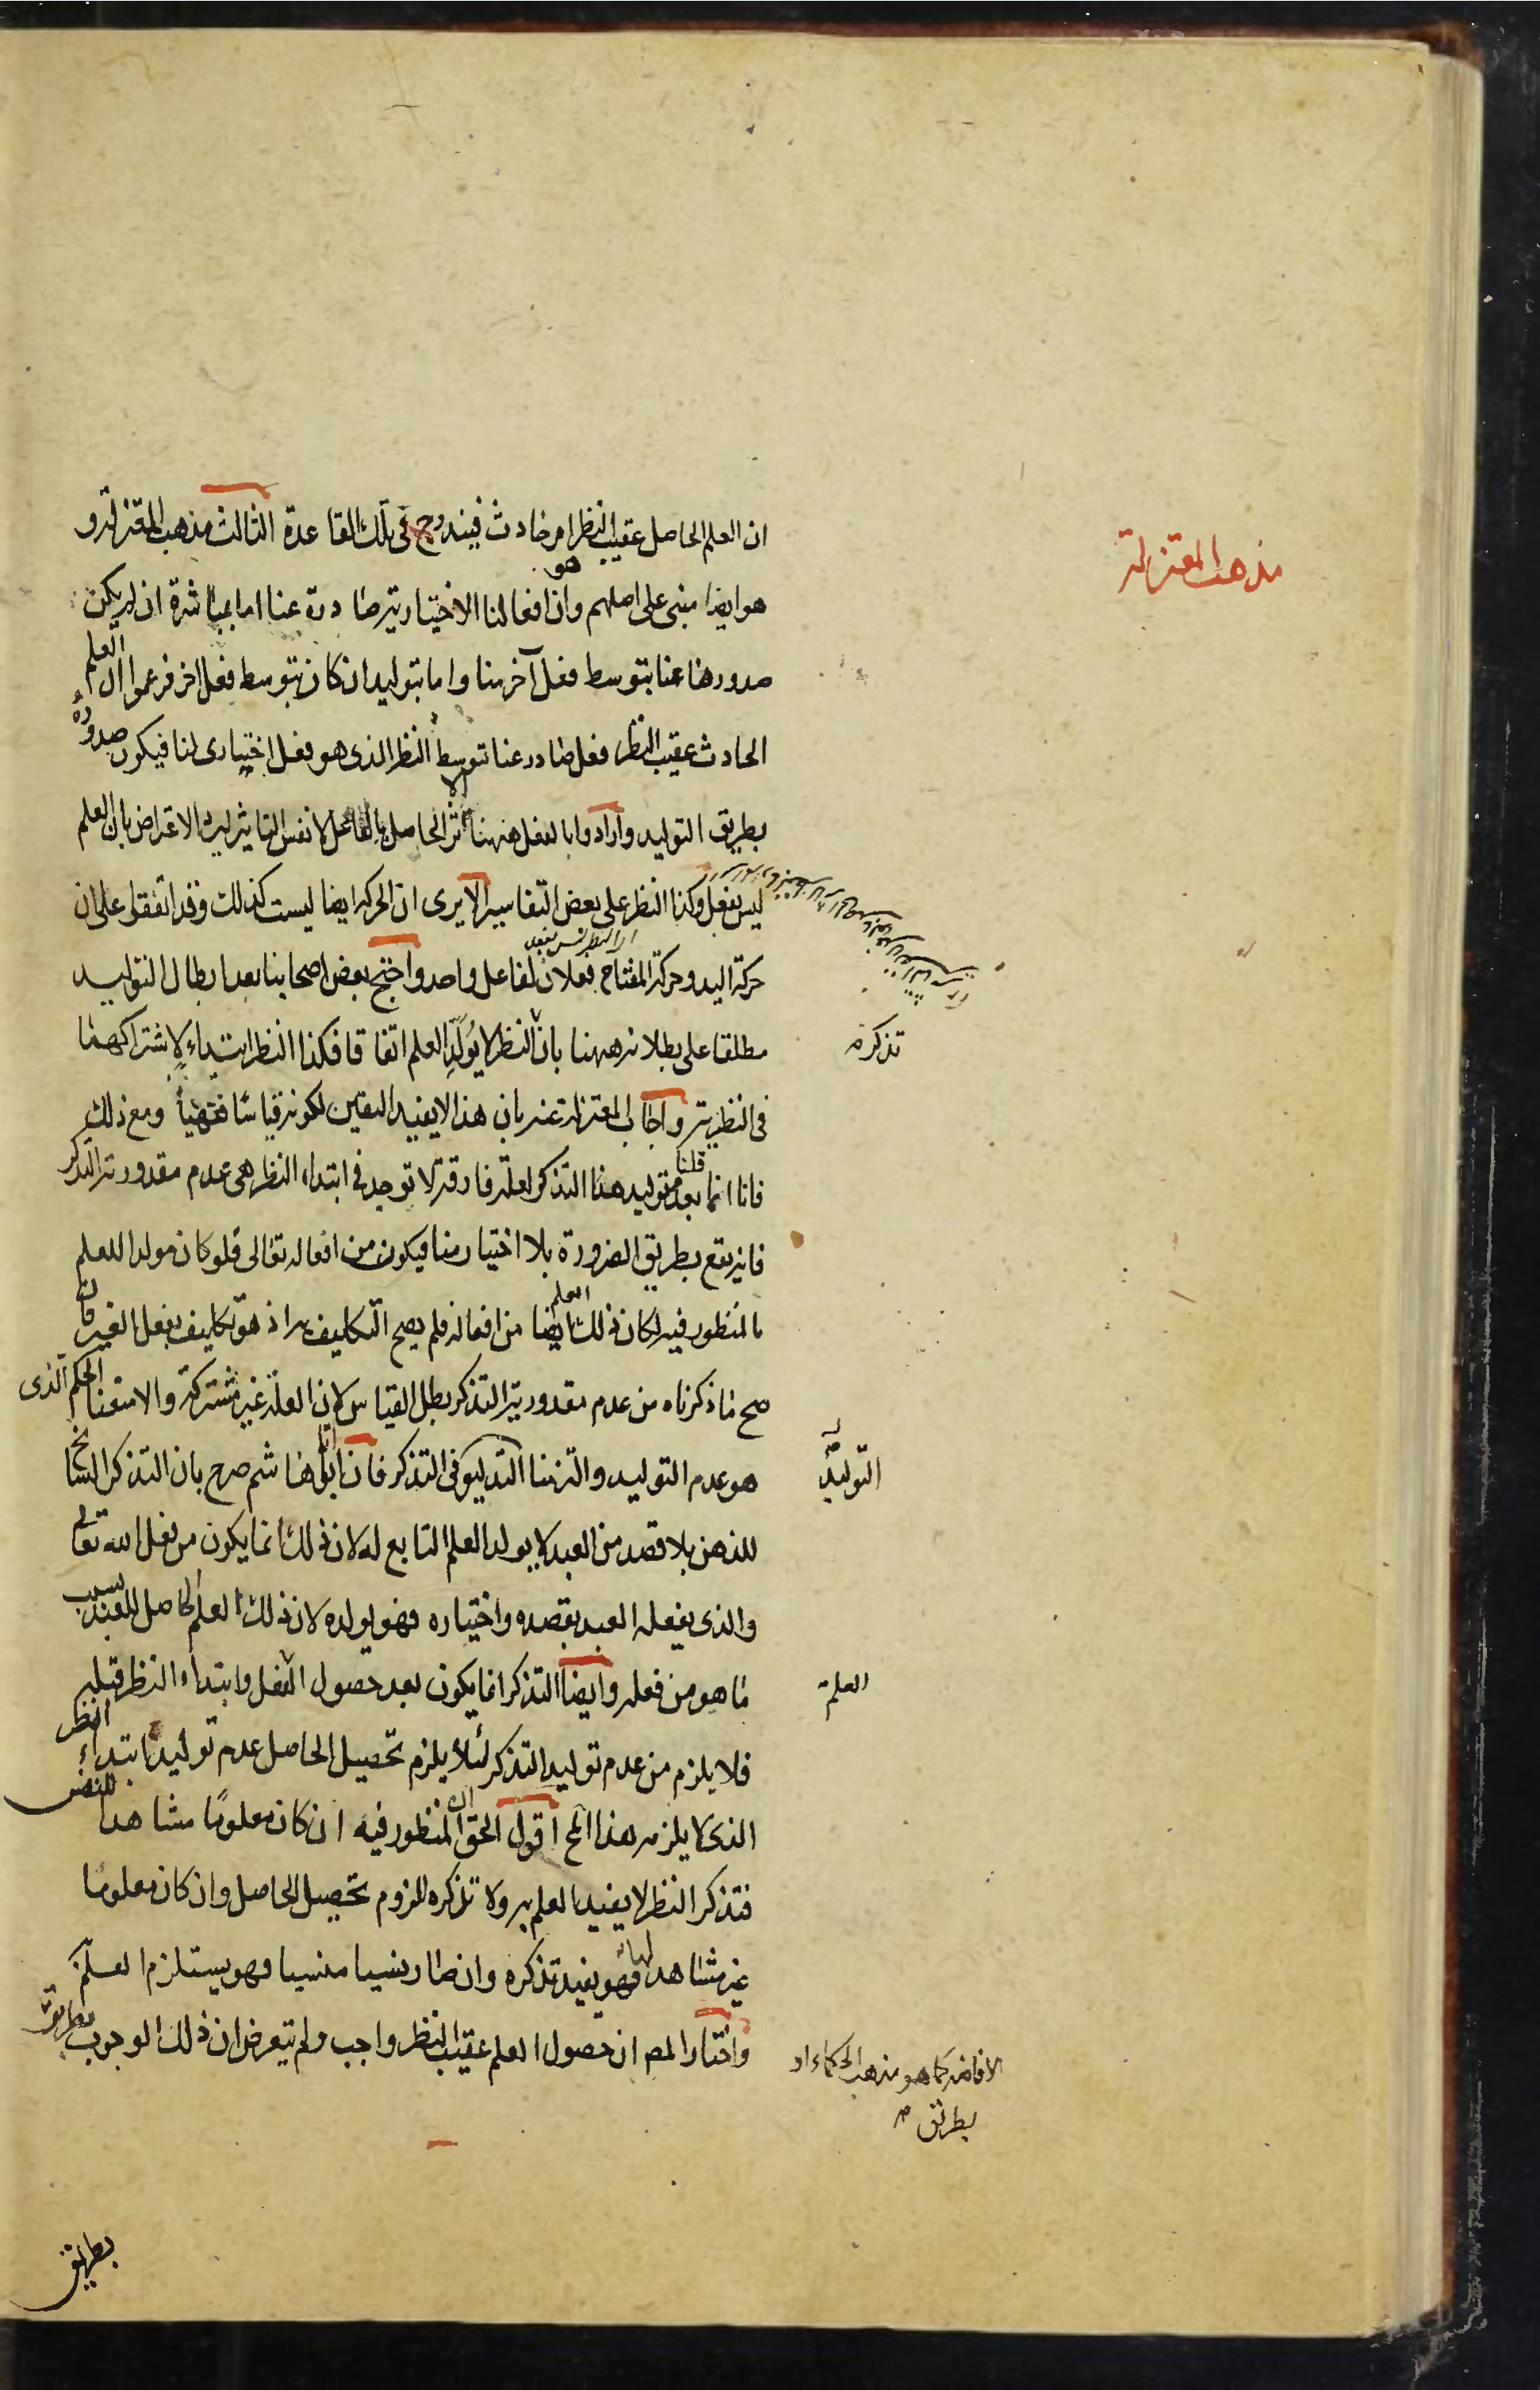 مذهب المعتزلة
ان العلم الحاصل عقيب النظر امر حادث فيندرج في تلك القاعدة الثالث مذهب المعتزلة و
هو ايضا مبنى على اصلهم وهو ان افعالنا الاختيارية صادرة عنا اما بمباشرة ان لم يكن
صدورها عنا بتوسط فعل آخر منا واما بتوليد ان كان بتوسط فعل اخر فزعموا ان العلم
الحادث عقيب النظر فعل صادر عنا بتوسط النظر الذى هو فعل اختيارى لنا فيكون صدوره
بطريق التوليد وارادوا بالفعل ههنا الاثر الحاصل بالفاعل لا نفس التاثير ليرد الاعتراض بان العلم
ليس بفعل وكذا النظر على بعض التفاسير الا يرى ان الحركة ايضا ليست كذلك وقد اتفقوا على ان
حركة اليد وحركة المفتاح فعلان لفاعل واحد واحتج بعض اصحابنا بعد ابطال التوليد
مطلقا على بطلانه ههنا بان تذكر النظر لا يولد العلم اتفاقا فكذا النظر ابتداء لاشتراكهما
في النظرية واجاب المعتزلة عنه بان هذا لا يفيد اليقين لكونه قياسا فقهيا ومع ذلك
فانا انما قلنا بعدم توليد هذا التذكر لعلة فارقة لا توجد في ابتداء النظر هى عدم مقدورية التذكر
فانه يقع بطريق الضرورة بلا اختيار منا فيكون من افعاله تعالى فلو كان مولدا للعلم
بالمنظور فيه لكان ذلك العلم ايضا من افعاله فلم يصح التكليف به اذ هو تكليف بفعل الغير فان
صح ما ذكرناه من عدم مقدورية التذكر بطل القياس لان العلة غير مشتركة والا منعنا الحكم الذى
هو عدم التوليد والتزمنا التوليد في التذكر فان ابا هاشم صرح بان التذكر السانح
للذهن بلا قصد من العبد لا يولد العلم التابع له لان ذلك انما يكون من فعل الله تعالى
والذى يفعله العبد بقصده واختياره فهو يولده لان ذلك العلم الحاصل للعبد بسبب
ما هو من فعله وايضا التذكر انما يكون بعد حصول العلم وابتداء النظر قبله
فلا يلزم من عدم توليد التذكر لئلا يلزم تحصيل الحاصل عدم توليد ابتداء النظر
الذى لا يلزمه هذا المح اقول الحق ان المنظور فيه ان كان معلوما مشاهدا للنفس
فتذكر النظر لا يفيد العلم به ولا تذكره للزوم تحصيل الحاصل وان كان معلوما
غير مشاهد لها فهو يفيد تذكره وان صار نسيا منسيا فهو يستلزم العلم
واختار المص ان حصول العلم عقيب النظر واجب ولم يتعرض ان ذلك الوجوب بطريق
الافاضة كما هو مذهب الحكماء او
بطريق
بطريق